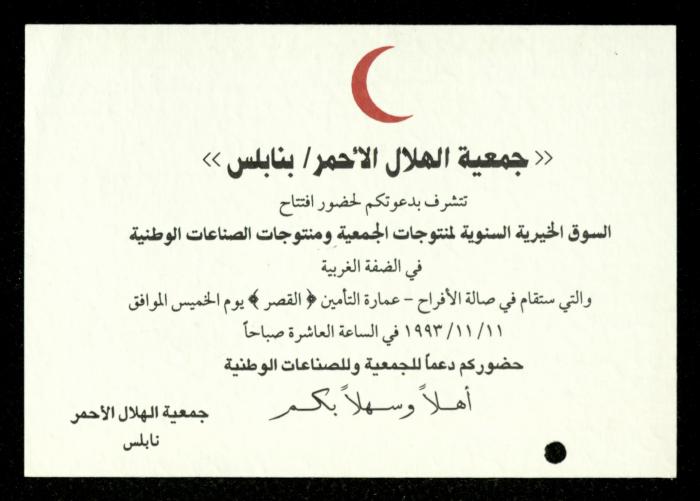 « جمعية الهلال الأحمر / بنابلس »
تتشرف بدعوتكم لحضور افتتاح
السوق الخيرية السنوية لمنتوجات الجمعية ومنتوجات الصناعات الوطنية
في الضفة الغربية
والتي ستقام في صالة الأفراح - عمارة التأمين ﴿ القصر ﴾ يوم الخميس الموافق
١١ /١١ /١٩٩٣ في الساعة العاشرة صباحاً
حضوركم دعماً للجمعية وللصناعات الوطنية
أهلاً وسهلاً بكم
جمعية الهلال الأحمر
نابلس